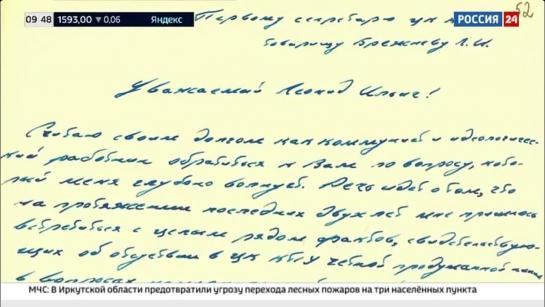 09 48 1593,00 ▼ 0,06 Яндекс РОССИЯ 24
52
Первому секретарю ЦК
товарищу Брежневу Л.И.
Уважаемый Леонид Ильич!
Считаю своим долгом как коммунист и идеологичес-
кий работник обратиться к Вам по вопросу, кото-
рый меня глубоко волнует. Речь идет о том, что
на протяжении последних двух лет мне пришлось
встретиться с целым рядом фактов, свидетельствую-
щих об отсутствии в ЦК четкой продуманной
в вопросах
МЧС: В Иркутской области предотвратили угрозу перехода лесных пожаров на три населённых пункта